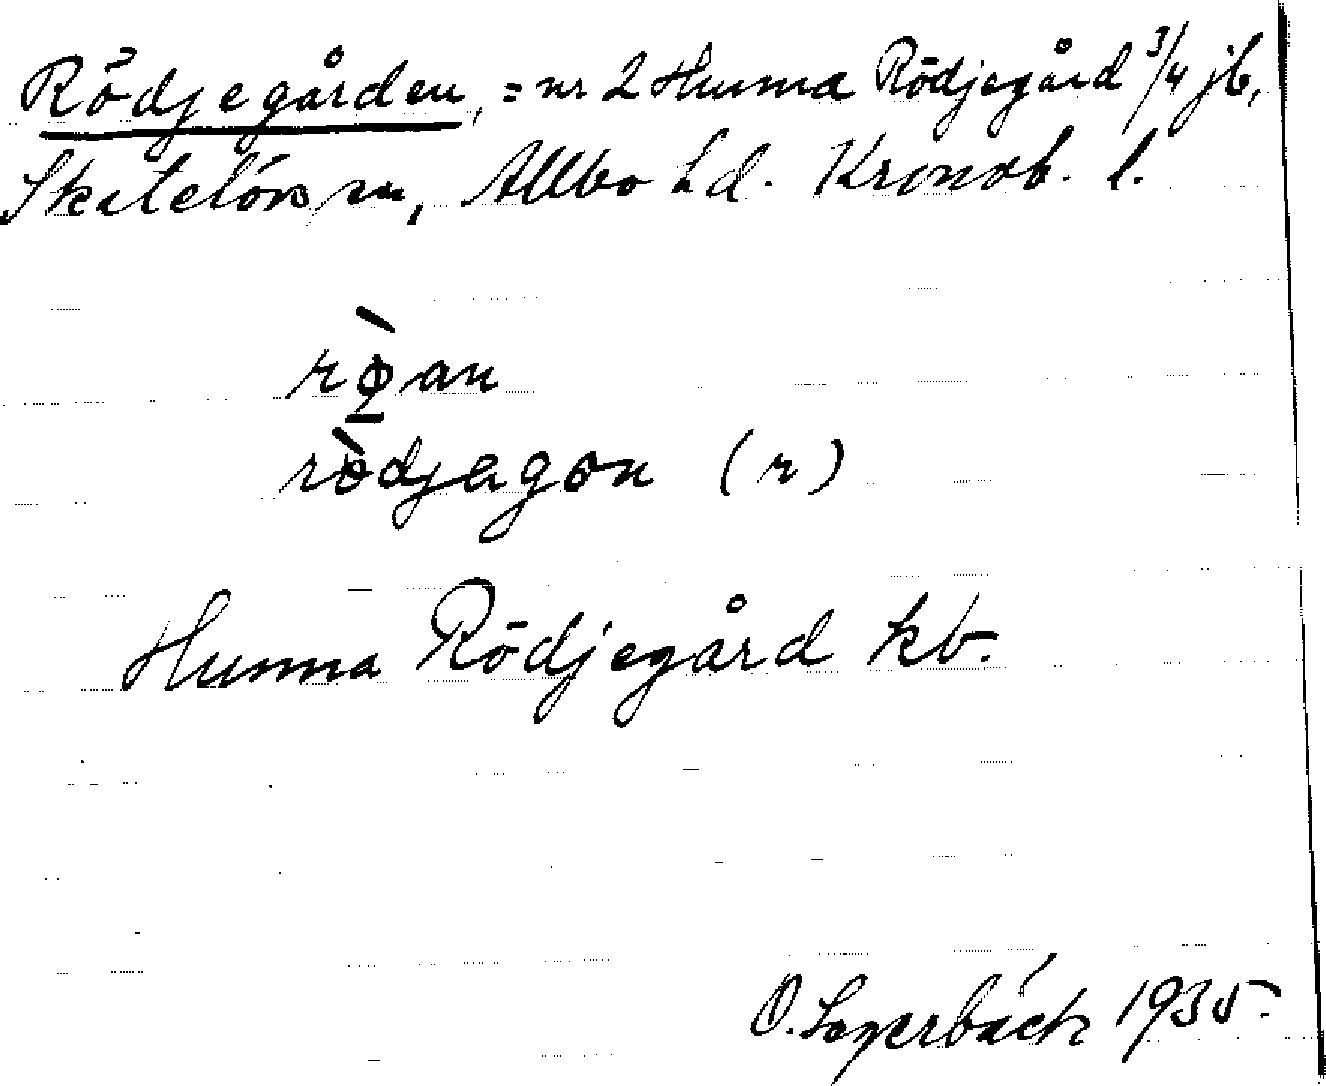 Rödjegården, = nr 2 Hunna Rödjegård 3/4 jb,
Skatelövs sn, Allbo hd. Kronob. l.
rø̀an
rödjagon (r)
Hunna Rödjegård kb.
O. Lagerbäck 1935.